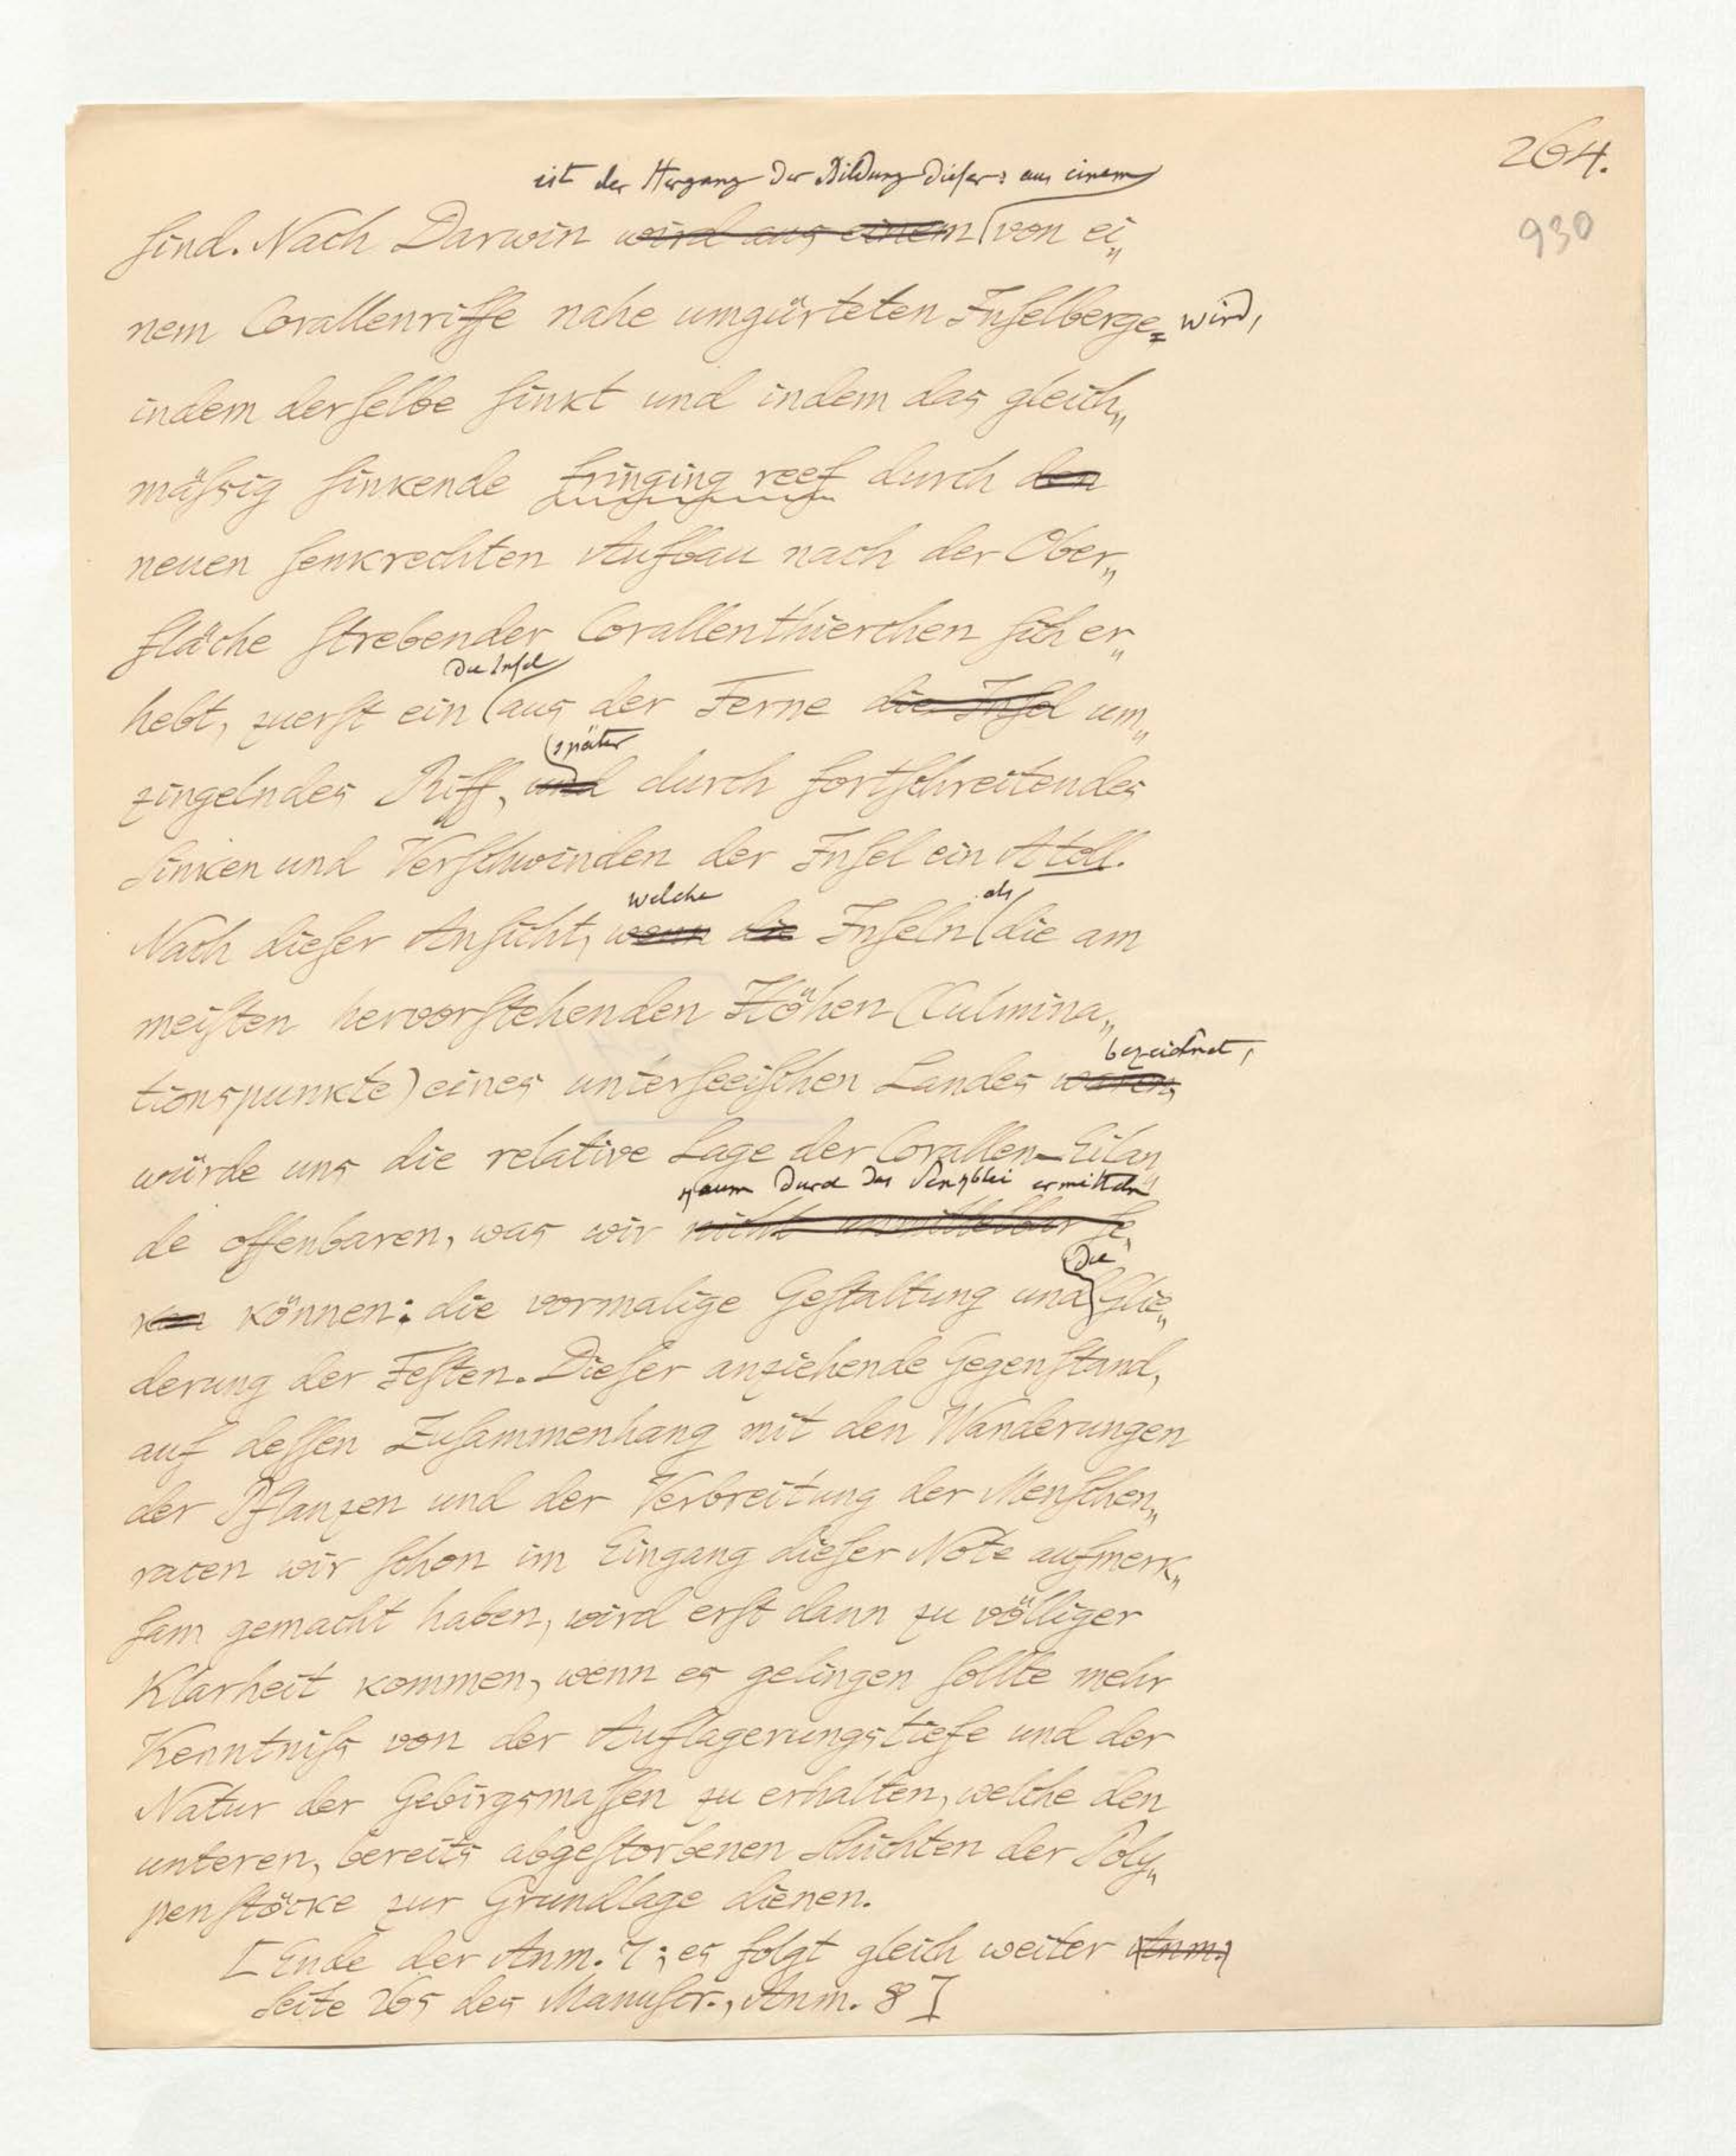 264.
930
ist der Hergang der Bildung dieser: aus einem
sind. Nach Darwin wird aus einem von ei„
nem Corallenriffe nahe umgürteten Inselberge= wird,
indem derselbe sinkt und indem das gleich„
mäßig sinkende fringing reef durch den
neuen senkrechten Aufbau nach der Ober„
fläche strebender Corallenthierchen sich er„
die Insel
hebt, zuerst ein aus der Ferne die Insel um„
später
zingelndes Riff, und durch fortschreitendes
Sinken und Verschwinden der Insel ein Atoll.
welche als
Nach dieser Ansicht, wenn die Inseln die am
meisten hervorstehenden Höhen (Culmina„
bezeichnet,
tionspunkte) eines unterseeischen Landes wären,
würde uns die relative Lage der Corallen-Eilan„
kaum durch das Senkblei ermitteln
de offenbaren, was wir nicht unmittelbar se„
die
hen können: die vormalige Gestaltung und Glie„
derung der Festen. Dieser anziehende Gegenstand,
auf dessen Zusammenhang mit den Wanderungen
der Pflanzen und der Verbreitung der Menschen„
racen wir schon im Eingang dieser Note aufmerk„
sam gemacht haben, wird erst dann zu völliger
Klarheit kommen, wenn es gelingen sollte mehr
Kenntniß von der Auflagerungstiefe und der
Natur der Gebirgsmassen zu erhalten, welche den
unteren, bereits abgestorbenen Schichten der Poly„
penstöcke zur Grundlage dienen.
[Ende der Anm. 7; es folgt gleich weiter Anm.
Seite 265 des Manuscr., Anm. 8]